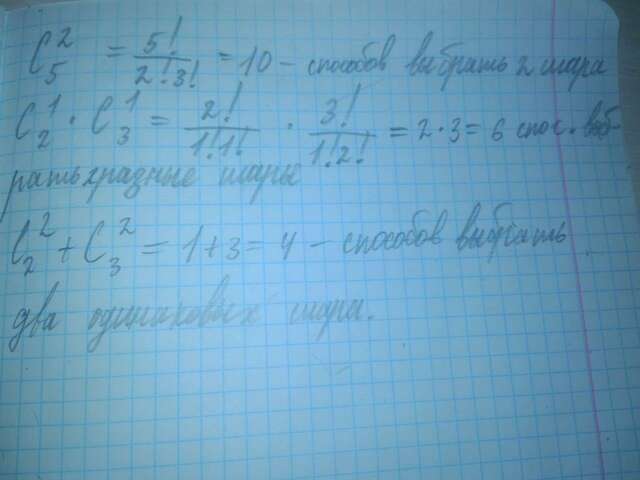 C₅² = 5!/2!3! = 10 – способов выбрать 2 шара
C₂¹ · C₃¹ = 2!/1!1! · 3!/1!2! = 2·3 = 6 спос. выб-
рать разные шары
C₂² + C₃² = 1+3 = 4 – способов выбрать
два одинаковых шара.